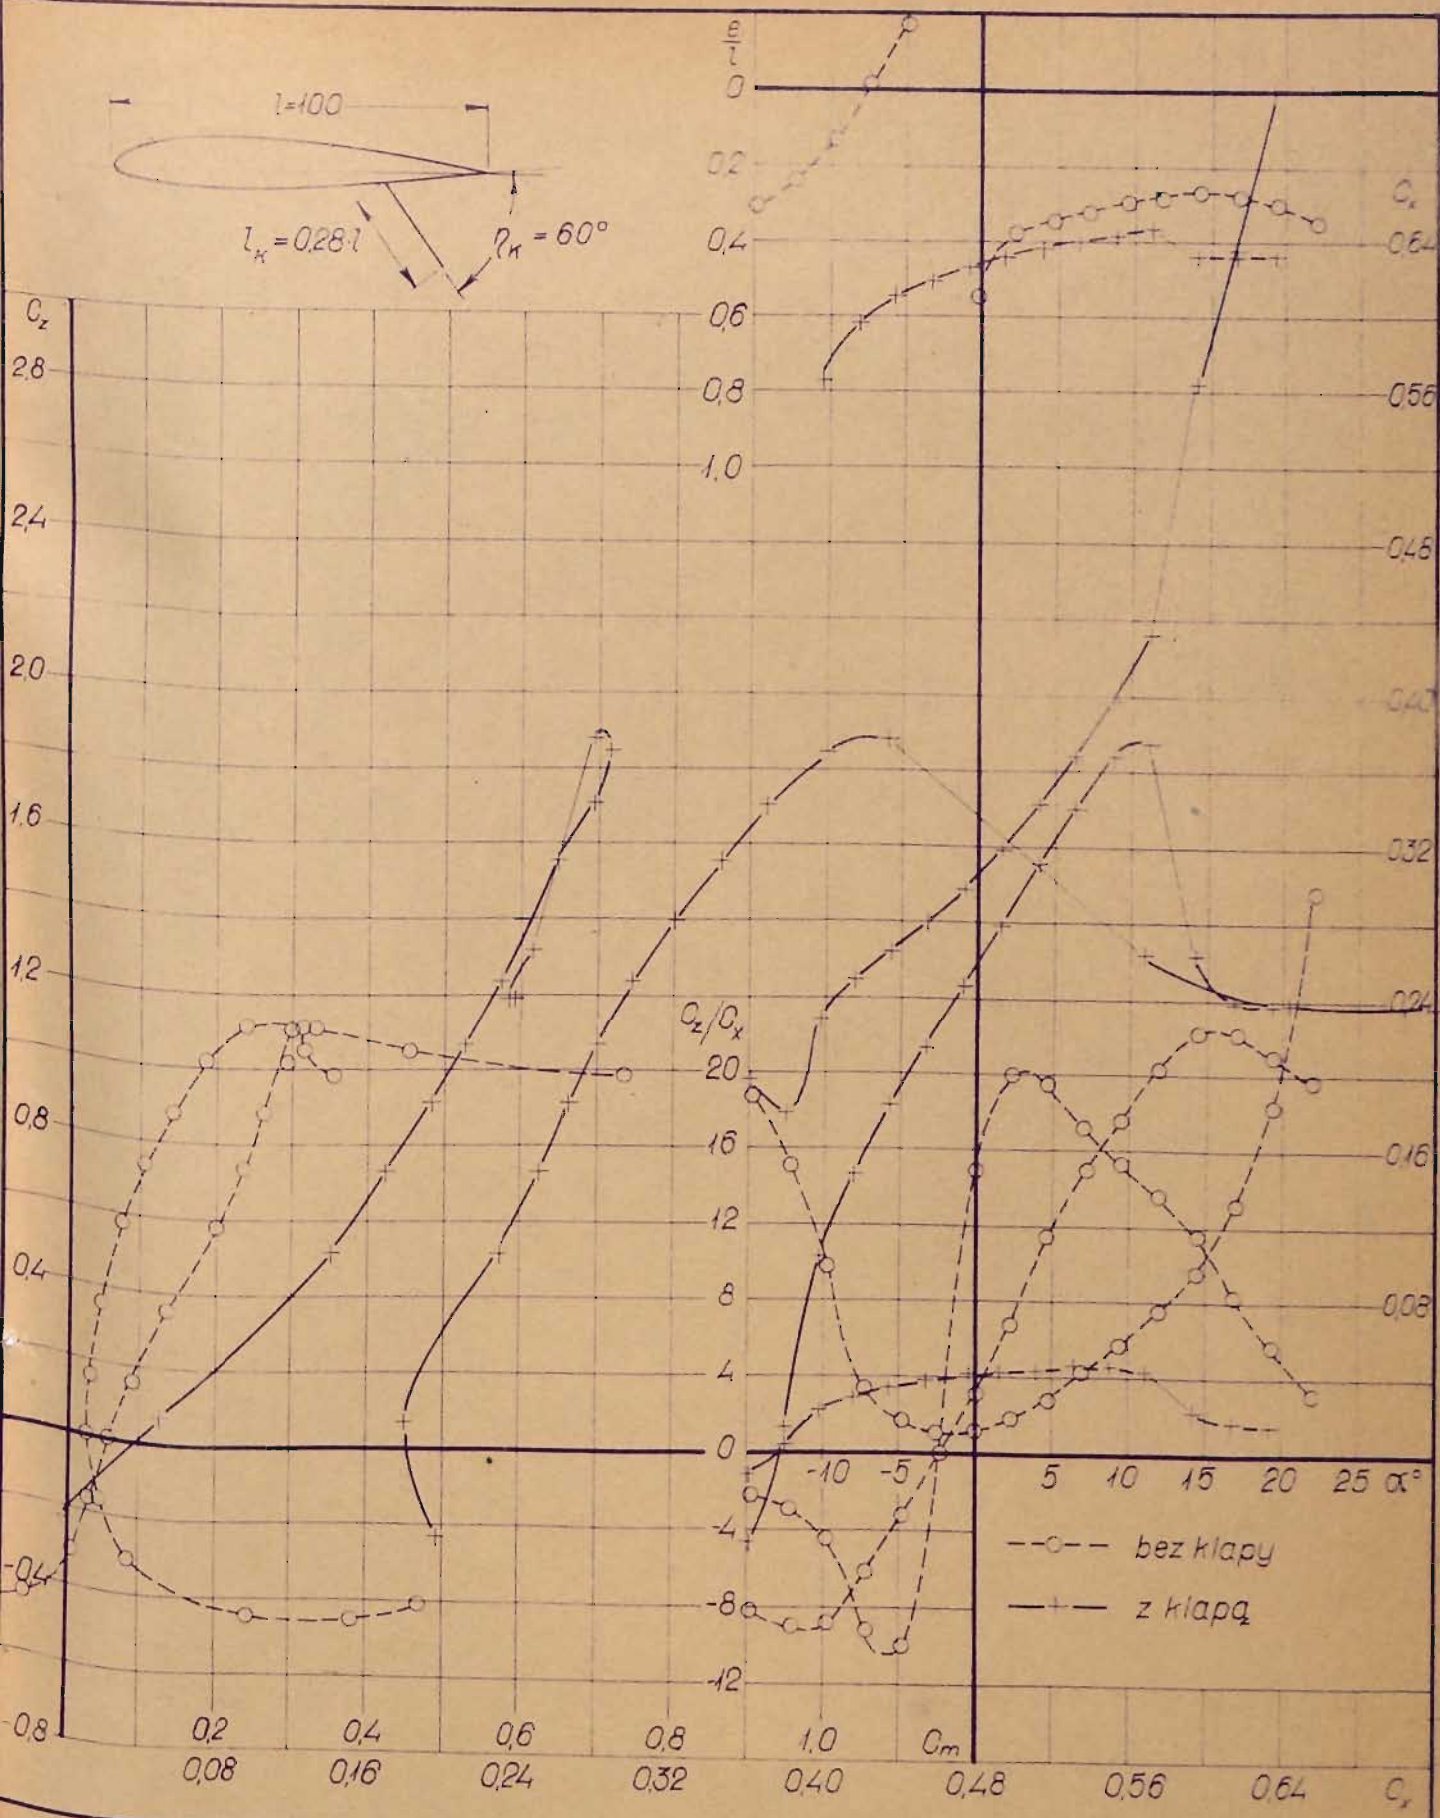 l=100
lₖ=0,28·l
ηₖ = 60°
e/l
0
0,2
0,4
0,6
0,8
1,0
Cₓ
0,64
0,56
0,48
0,40
0,32
0,24
0,16
0,08
C_z
2,8
2,4
2,0
1,6
1,2
0,8
0,4
-0,4
-0,8
C_z/Cₓ
20
16
12
8
4
0
-4
-8
-12
-10 -5 5 10 15 20 25 α°
--o-- bez klapy
—+— z klapą
0,2 0,4 0,6 0,8 1,0 Cₘ
0,08 0,16 0,24 0,32 0,40 0,48 0,56 0,64 Cₓ